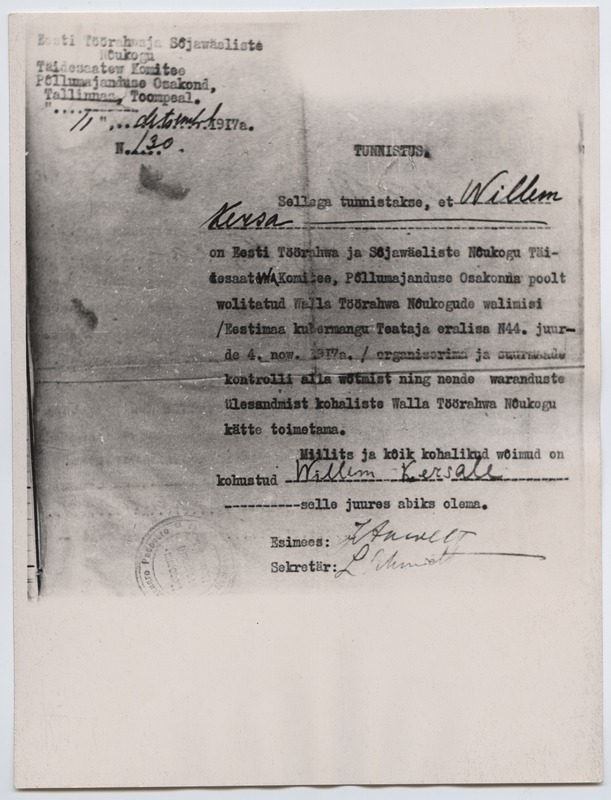 Eesti Töörahwaja Sõjawäeliste
Nõukogu
Täidesaatew Komitee
Põllumajanduse Osakond,
Tallinnas, Toompeal.
"....11",..detsembril..1917a.
N.130.
TUNNISTUS.
Sellega tunnistakse, et Willem
Kersa
on Eesti Töörahwa ja Sõjawäeliste Nõukogu Täi-
desaatewa Komitee, Põllumajanduse Osakonna poolt
wolitatud Walla Töörahwa Nõukogude walimisi
/Eestimaa kubermangu Teataja eralisa N44. juur-
de 4. now. 1917a./ organiseerima ja suurmaade
kontrolli alla wõtmist ning nende waranduste
ülesandmist kohaliste Walla Töörahwa Nõukogu
kätte toimetama.
Miilits ja kõik kohalikud wõimud on
kohustud Willem Kersale
----------selle juures abiks olema.
Esimees:
Sekretär: L Schmidt